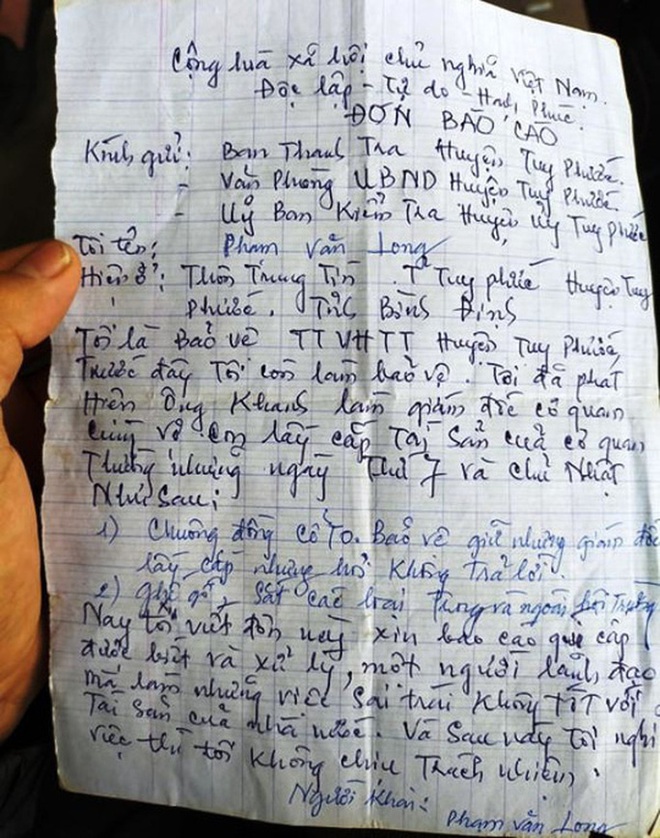 Cộng hoà xã hội chủ nghĩa Việt Nam.
Độc lập - Tự do - Hạnh Phúc.
ĐƠN BÁO CÁO
Kính gửi: Ban Thanh Tra Huyện Tuy Phước.
- Văn Phòng UBND Huyện Tuy Phước.
- Uỷ Ban Kiểm Tra Huyện Uỷ Tuy Phước
Tôi tên: Phạm Văn Long
Hiện ở: Thôn Trung Tín TT Tuy phước Huyện Tuy
Phước. Tỉnh Bình Định
Tôi là Bảo vệ TTVHTT Huyện Tuy Phước,
Trước đây Tôi còn làm bảo vệ. Tôi đã phát
Hiện Ông Khanh làm giám đốc cơ quan
cùng vợ con lấy cắp Tài sản của cơ quan
Thường những ngày Thứ 7 và chủ Nhật
Như Sau:
1) Chuông đồng cổ To. Bảo vệ giữ nhưng giám đốc
lấy cắp nhưng hỏi không trả lời.
2) ghế gỗ, sắt các loại Trong và ngoài hội Trường
Nay tôi viết đơn này xin báo cáo quý cấp
được biết và xử lý, một người lãnh đạo
mà làm những việc sai trái không tốt với
Tài sản của nhà nước. Và sau này tôi nghỉ
việc thì tôi không chịu Trách nhiệm.
Người khai:
Phạm Văn Long